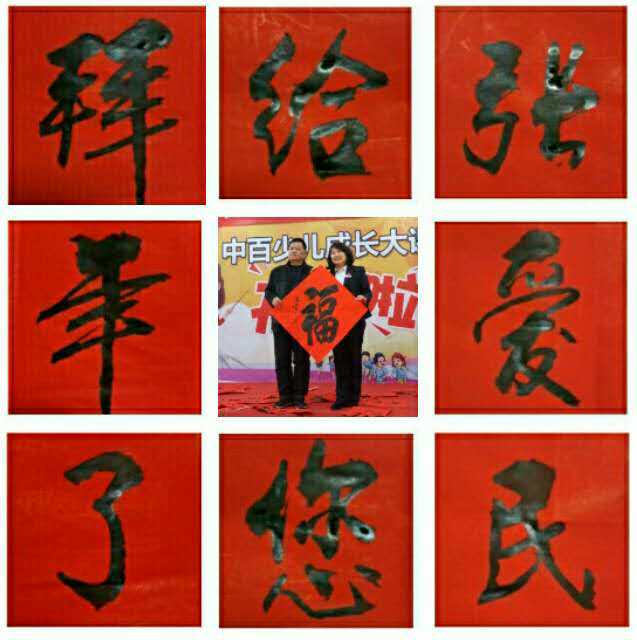 张爱民
给您
拜年了
中百少儿成长大
福